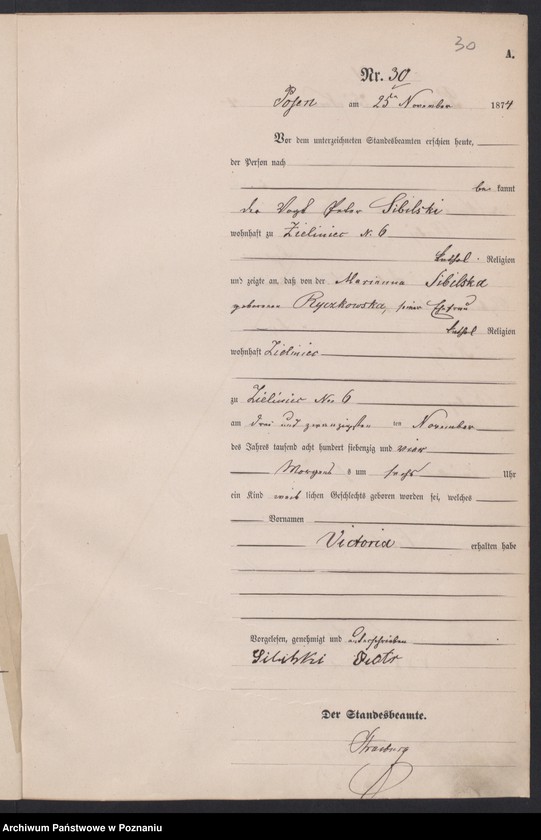 30
A.
Nr. 30
Posen am 25ten November 1874
Vor dem unterzeichneten Standesbeamten erschien heute,
der Person nach
be kannt
der Vogt Peter Sibilski
wohnhaft zu Zieliniec N. 6
kathol. Religion
und zeigte an, daß von der Marianna Sibilska
geborenen Ryczkowska, seiner Ehefrau
kathol Religion
wohnhaft Zieliniec
zu Zieliniec No 6
am drei und zwanzigsten ten November
des Jahres tausend acht hundert siebenzig und vier
Morgens um sechs Uhr
ein Kind weib lichen Geschlechts geboren worden sei, welches
Vornamen
Victoria erhalten habe
Vorgelesen, genehmigt und unterschrieben
Sibilski Piotr
Der Standesbeamte.
Archiwum Państwowe w Poznaniu